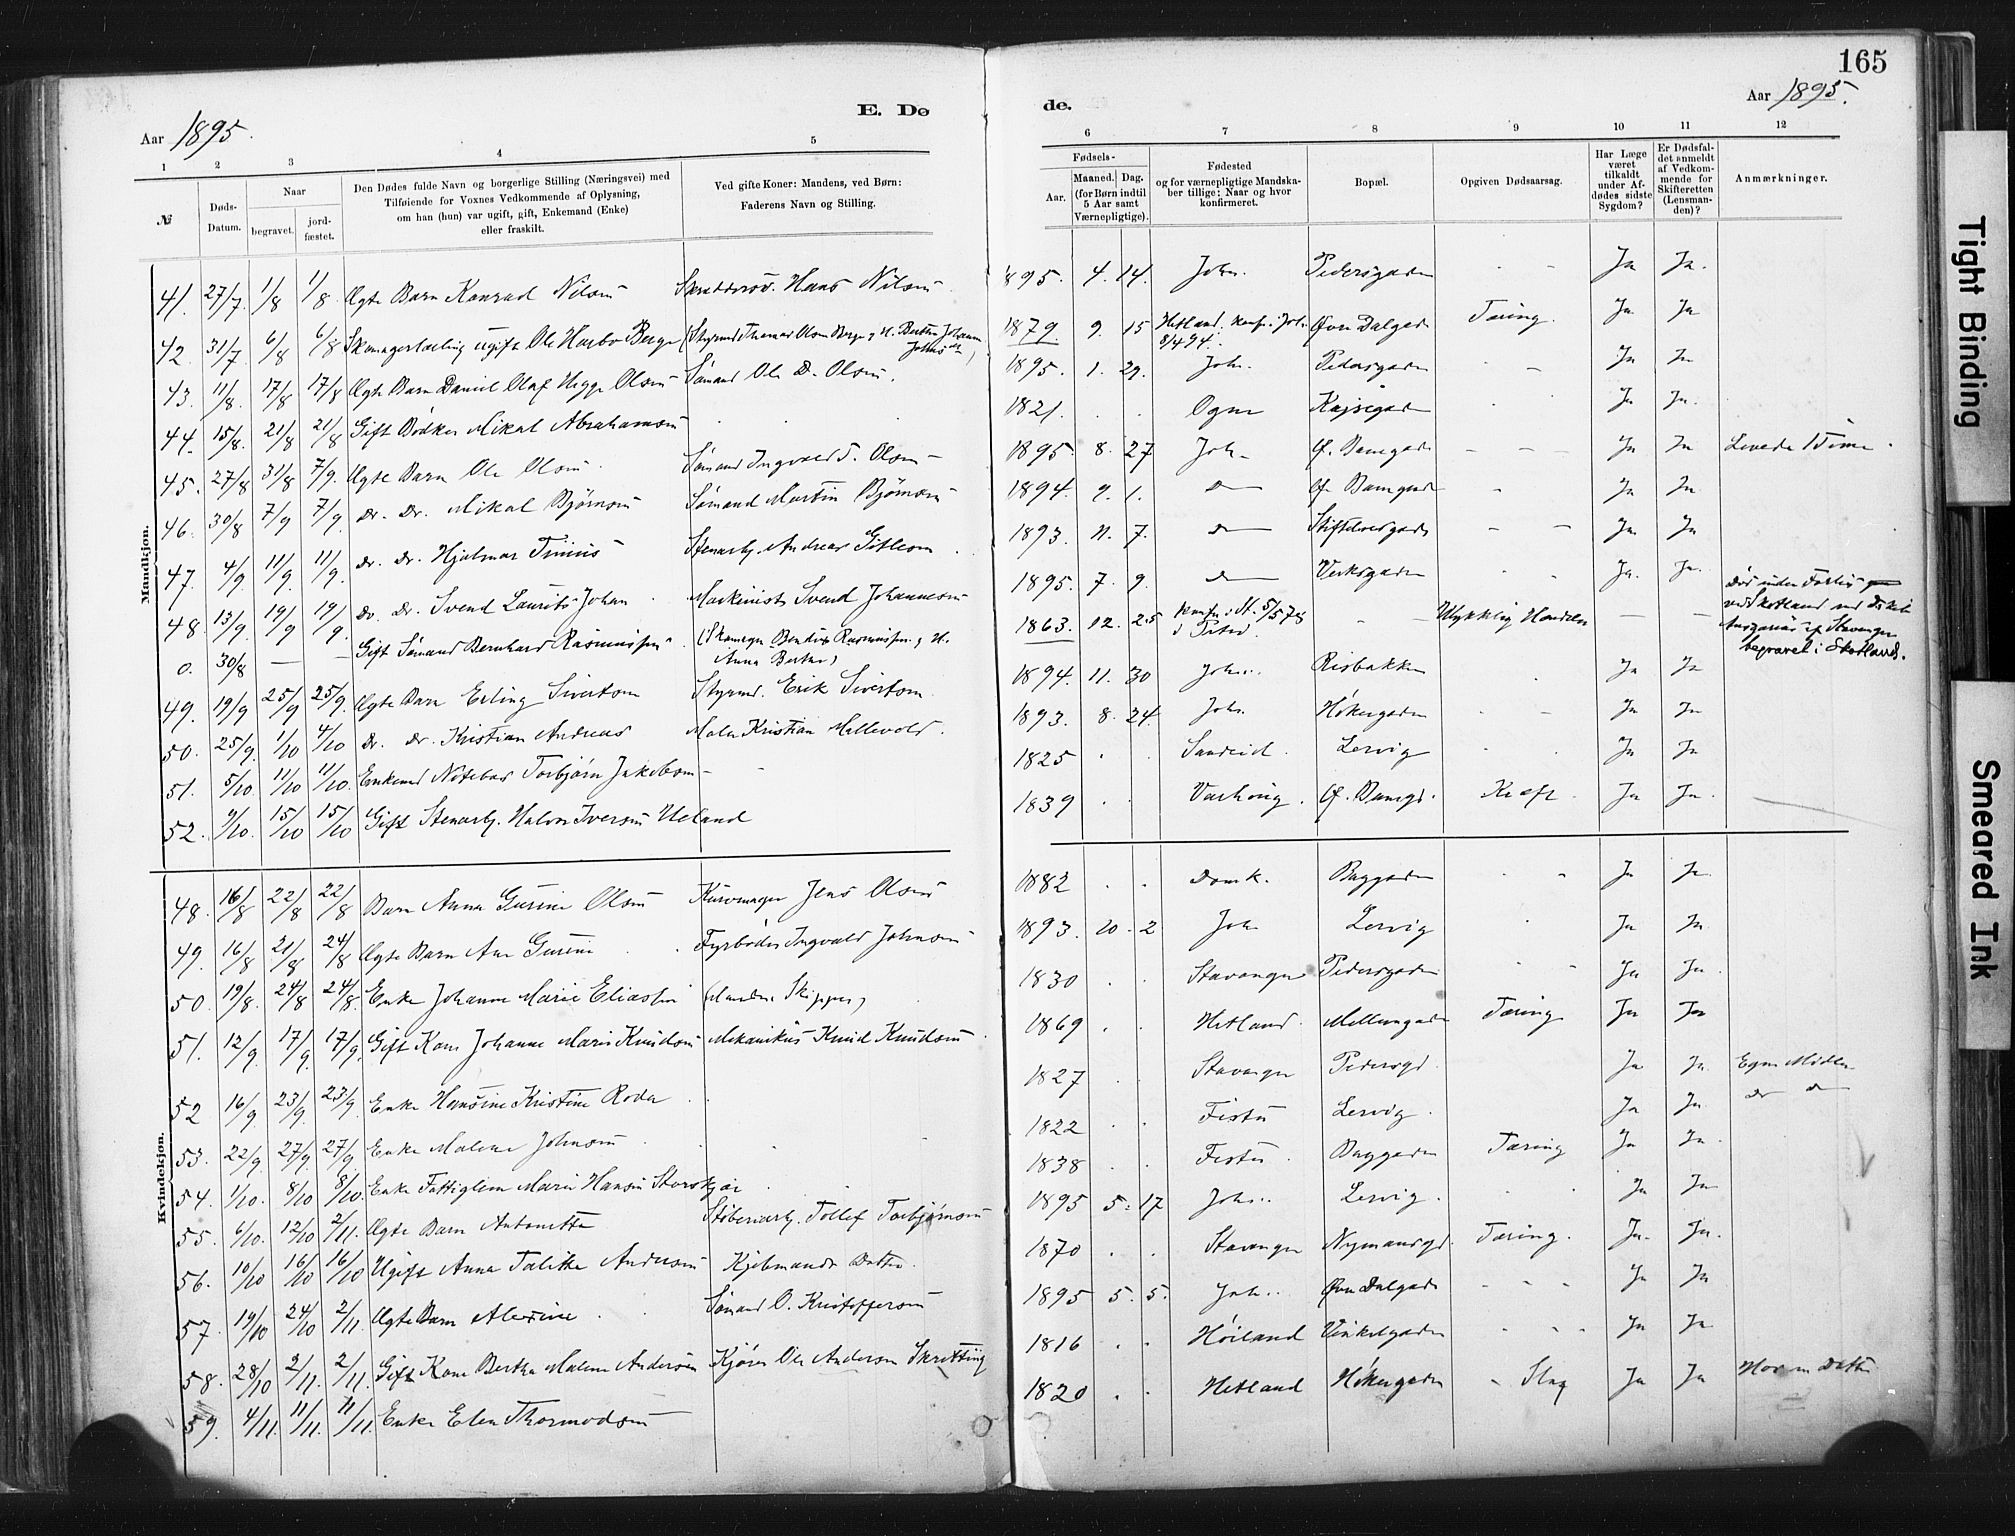 165
Aar 1895.
E. Dø
de.
Aar 1895.
1 2 3 4 5
6 7 8 9 10 11 12
№
Døds-Datum.
Naar
begravet.
jord-fæstet.
Den Dødes fulde Navn og borgerlige Stilling (Næringsvei) med
Tilføiende for Voxnes Vedkommende af Oplysning,
om han (hun) var ugift, gift, Enkemand (Enke)
eller fraskilt.
Ved gifte Koner: Mandens, ved Børn:
Faderens Navn og Stilling.
Fødsels-
Aar.
Maaned. Dag.
(for Børn indtil
5 Aar samt
Værnepligtige).
Fødested
og for værnepligtige Mandska-
ber tillige: Naar og hvor
konfirmeret.
Bopæl.
Opgiven Dødsaarsag.
Har Læge
været
tilkaldt
under Af-
dødes sidste
Sygdom?
Er Dødsfal-
det anmeldt
af Vedkom-
mende for
Skifteretten
(Lensman-
den)?
Anmærkninger.
Mandkjøn.
41. 27/7. 1/8 1/8. Ægte Barn Konrad Nilsen Hans Nilsen 1895. 4. 14. Joh. Pedersgaden - - Ja Ja.
42. 31/7 6/8 6/8 Skomagerlærling ugift Ole Berge 1879. 9. 15 Hetland. Konf. i Joh. 8/4 94. Øvre Dalgade Tæring. Ja Ja
43. 11/8. 17/8 17/8 Ægte Barn Daniel Olaf Olsen Sømand Ole D. Olsen. 1895. 1. 29. Joh. Pedersgaden - - Ja Ja
44. 15/8. 21/8 21/8 Gift Bødker Mikal Abrahamsen 1821. . . Ogne Kajsegaden Ja Ja.
45. 27/8 31/8 7/9. Ægte Barn Ole Olsen. Sømand Ingvald T. Olsen 1895. 8. 27 Joh. - - - Ja Ja Levede 1 Time.
46. 30/8 7/9 7/9. Do. Do. Mikal Bjørnsen Sømand Martin Bjørnsen 1894. 9. 1. Do - Ja Ja.
47. 4/9. 11/9. 11/9. Do. Do. Hjalmar Tinius Stenarb. Andreas Gitlesen. 1893. 11. 7. Do - - Ja Ja
48. 13/9. 19/9 19/9. Do. Do. Svend Laurits Johan Maskinist Svend Johannesen 1895. 7. 9. Do Verksgaden Ja. Ja.
0. 30/8 - - Gift Sømand Bernhard Rasmussen (Skomager Bendix Rasmussen, H. Anna Berthe) 1863. 12. 25 Konf. i St. 5/5 78 - - Ulykkelig Hændelse - - begravet i Skotland.
49. 19/9 25/9 25/9. Ægte Barn Erling Sivertsen Styrmd. Erik Sivertsen. 1894. 11. 30 Joh. Risbakken Ja Ja
50. 25/9. 1/10 4/10 Do. Do. Kristian Andreas Maler Kristian Mellevold. 1893. 8. 24. Joh. Høkergaden - - Ja Ja
51. 5/10. 11/10 11/10. Enkemd Torbjørn Jakobsen - - 1825 . . Sandeid. Lervig Ja Ja
52. 9/10. 15/10 15/10 Gift Stenarb. Halvor Iversen Ueland 1839 . . Varhoug. Kræft. Ja Ja.
Kvindekjøn.
48. 16/8 22/8 22/8 Barn Anna Gurine Olsen Kurvmager Jens Olsen 1882 . . Domk. Baggaden - - Ja Ja
49. 16/8 21/8 24/8 Ægte Barn Ane Gurine Fyrbøder Ingvald Johnsen 1893. 10. 2 Joh Lervig Ja Ja.
50. 19/8. 24/8 24/8. Enke Johanne Marie Eliassen (Manden Skipper) 1830 . . Stavanger Pedersgaden - - Ja Ja.
51. 12/9 17/9 17/9. Gift Kone Johanne Marie Knudsen Mekanikus Knud Knudsen 1869 . . Hetland. Mellemgaden Tæring Ja Ja
52 16/9 23/9. 23/9. Enke Hansine Kristine Roda. 1827 . . Stavanger Pedersgd. Ja Ja. Egne Midler
53. 22/9. 27/9. 27/9 Enke Malene Johnsen 1822 . . Fister Lervig. Ja Ja do do
54. 1/10. 8/10 8/10. Enke Fattiglem Marie Hansen Storskjær 1838 . . Fister. Baggaden Tæring Ja Ja.
55. 6/10. 12/10 2/11. Ægte Barn Antonette Støberiarb. Tollef Torbjørnsen 1895 5. 17 Joh. Lervig. Ja Ja
56. 10/10 16/10 16/10 Ugift Anna Talitha Andersen Kjøbmands Datter. 1870 . . Stavanger Nymansgd. Tæring. Ja. Ja.
57. 19/10 24/10 2/11. Ægte Barn Alexine Sømand O. Kristoffersen 1895 5. 5. Joh. Øvre Dalgade - - - Ja Ja
58. 28/10 2/11. 2/11. Gift Kone Bertha Malene Andersen Kjører Ole Andersen Skretting 1816 . . Høiland Vinkelgaden - - - Ja Ja
59. 4/11. 11/11. 11/11. Enke Elen Thormodsen 1820 . . Hetland Høkergaden - Slag Ja Ja Hos en Datter
Tight Binding
Smeared Ink